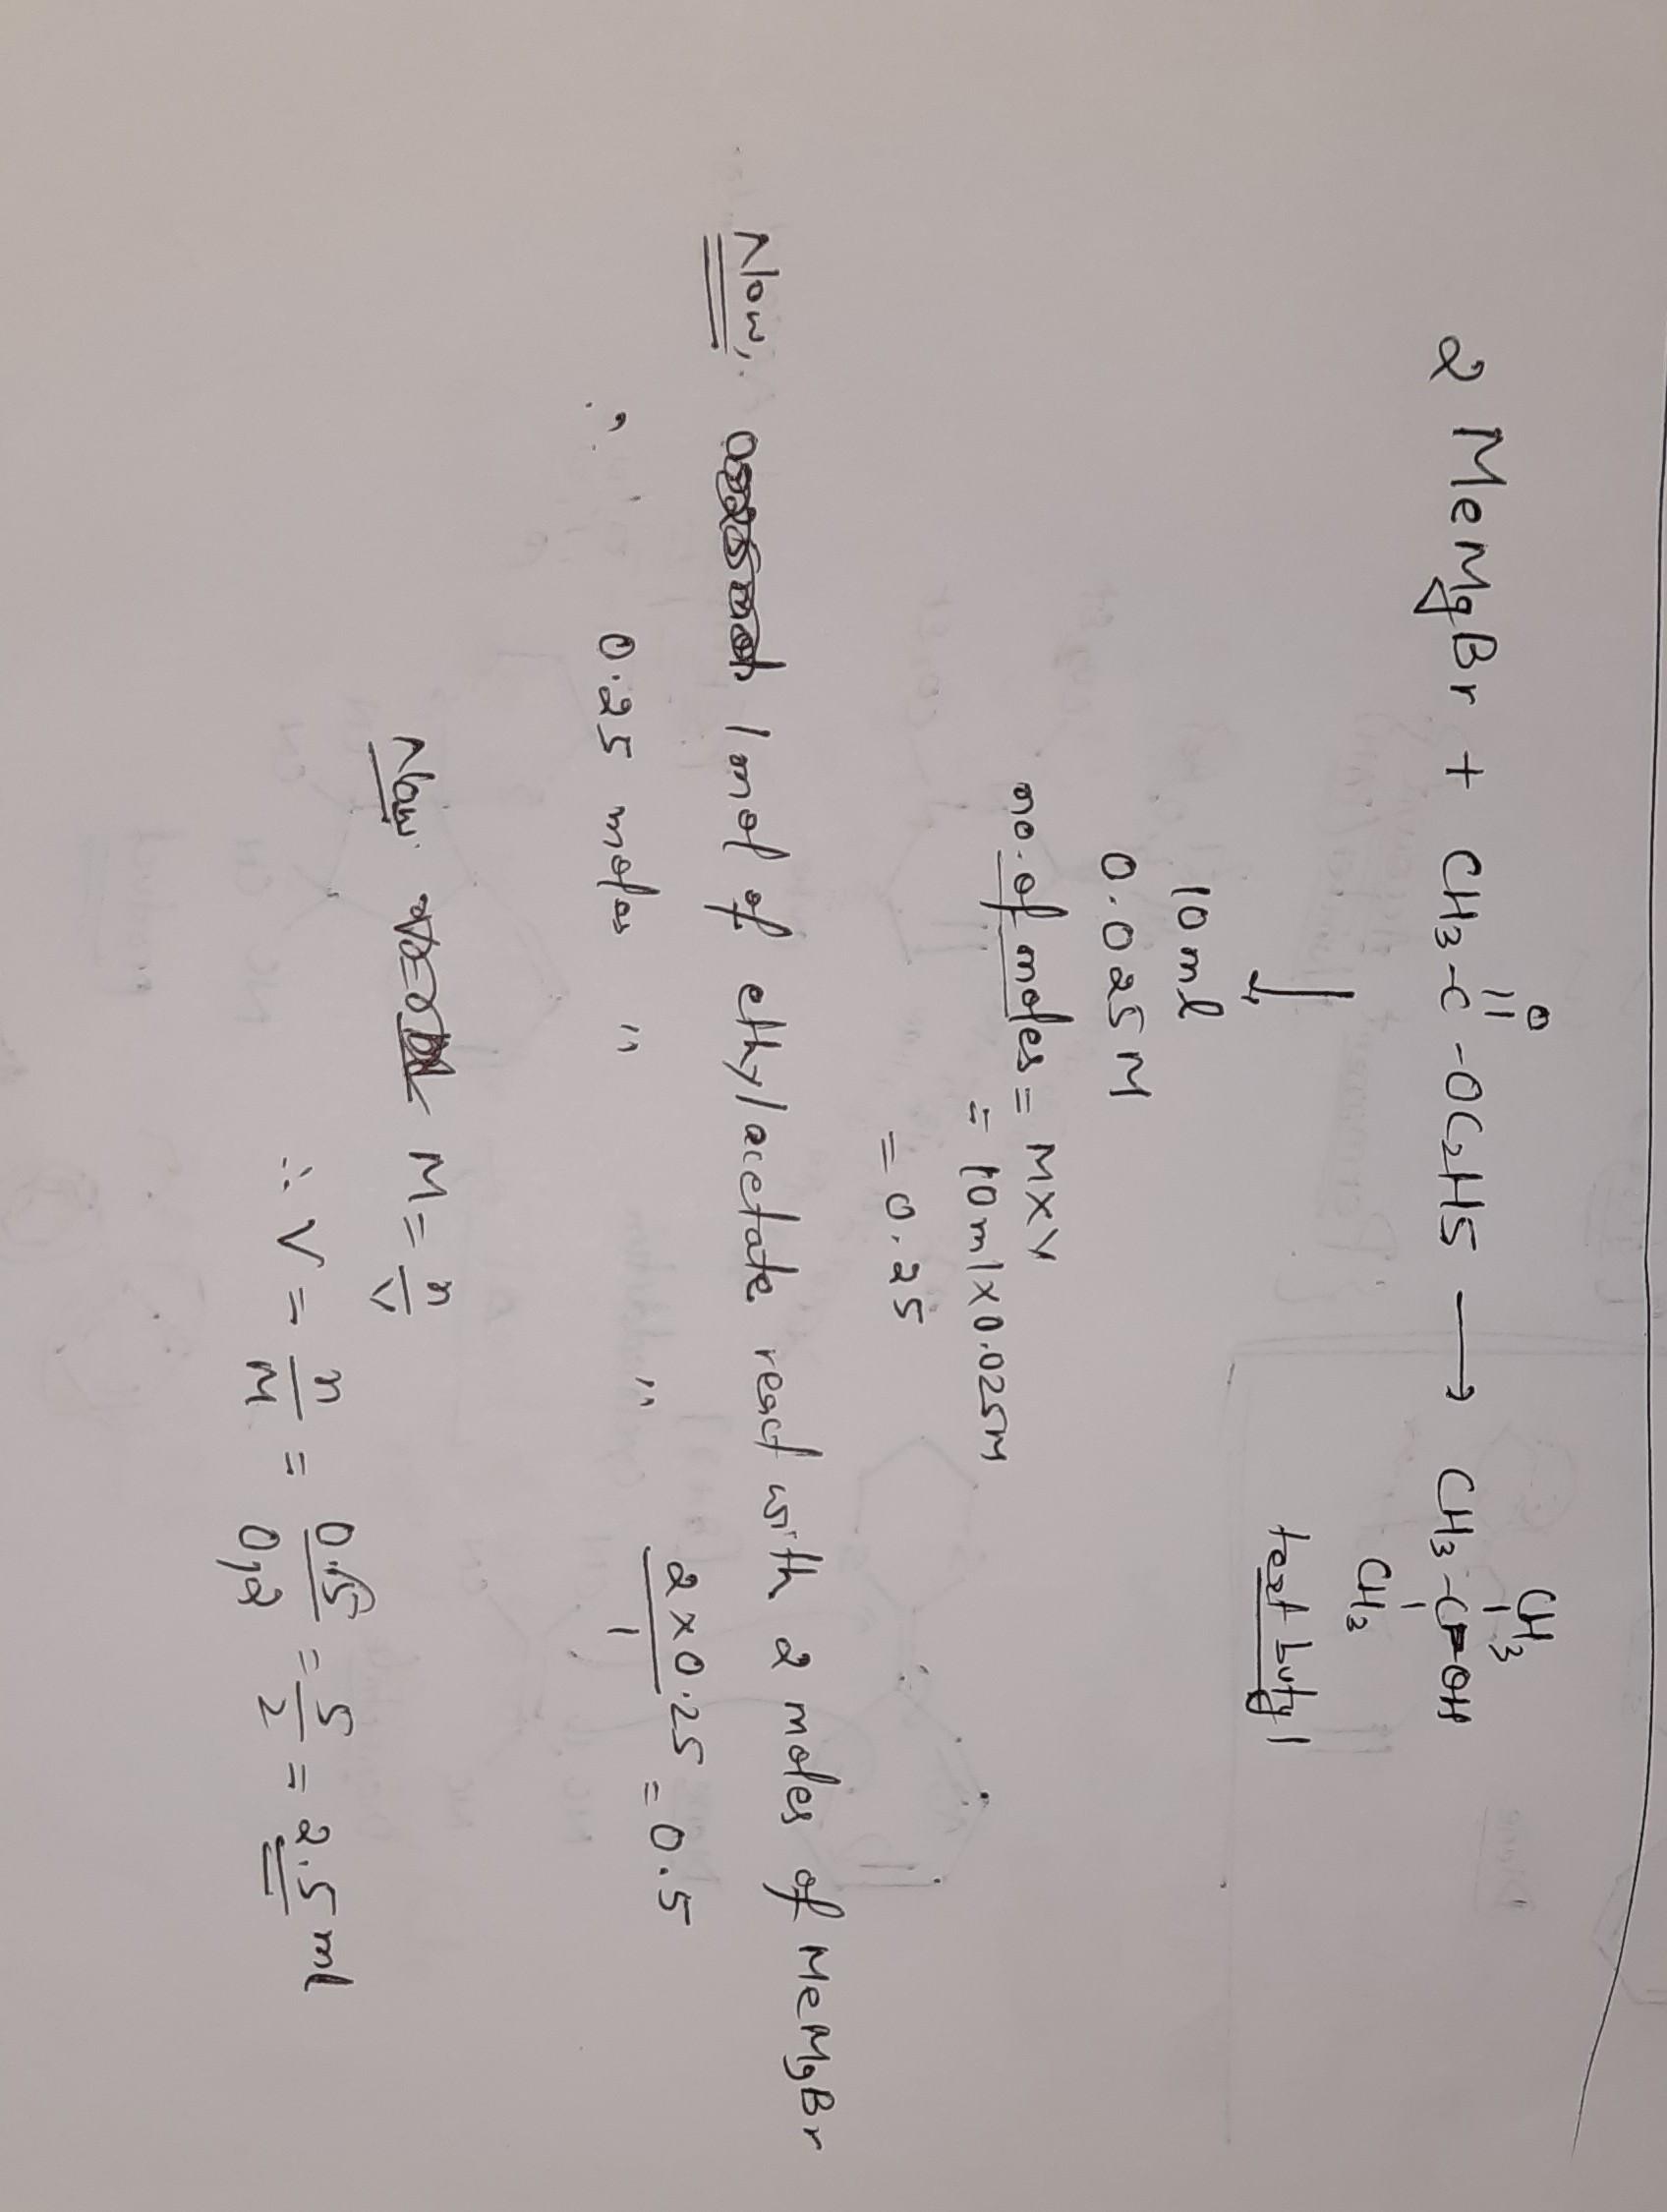 2 MeMgBr + CH3-C-OC2H5 ⟶ CH3-C-OH
O
CH3
CH3
tert butyl
10 ml
0.025 M
no. of moles = M×V
= 10 ml × 0.025M
= 0.25
Now, 1 mol of ethyl acetate react with 2 moles of MeMgBr
∴ 0.25 moles " " 2×0.25/1 = 0.5
Now M = n/V
∴ V = n/M = 0.5/0.2 = 5/2 = 2.5 ml